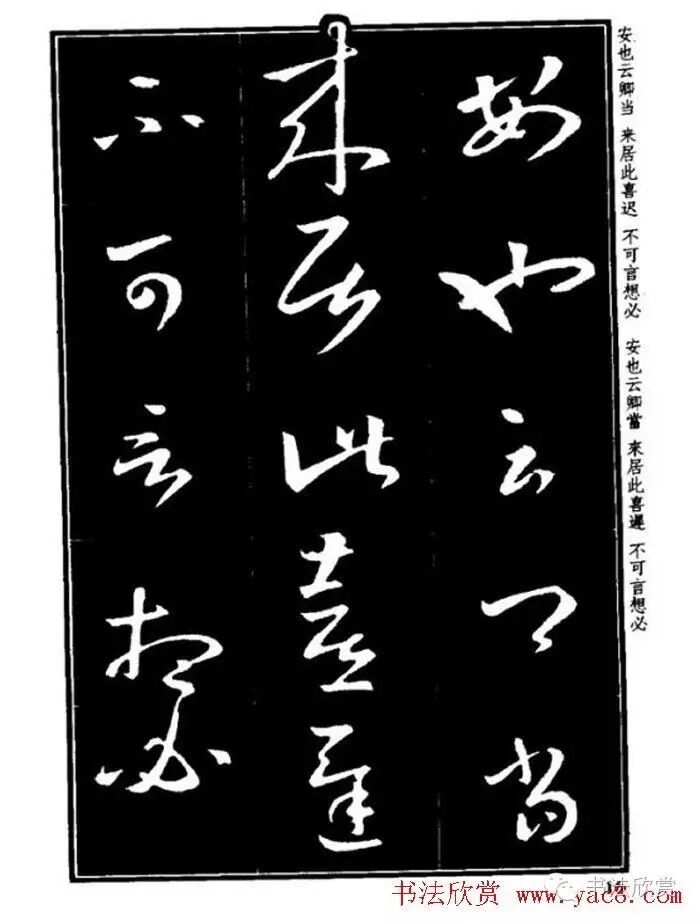 安也云卿当
来居此喜迟
不可言想必
安也云卿当 来居此喜迟 不可言想必
安也云卿當 來居此喜遲 不可言想必
书法欣赏 www.yac8.com
书法欣赏